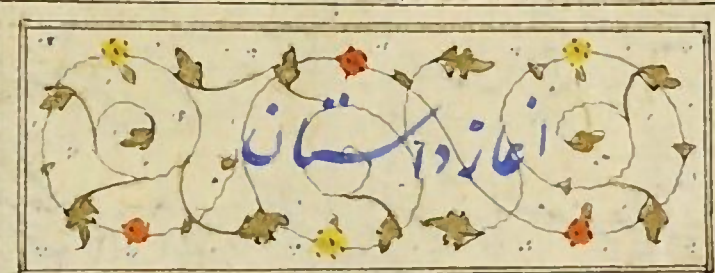 اغاز داستان